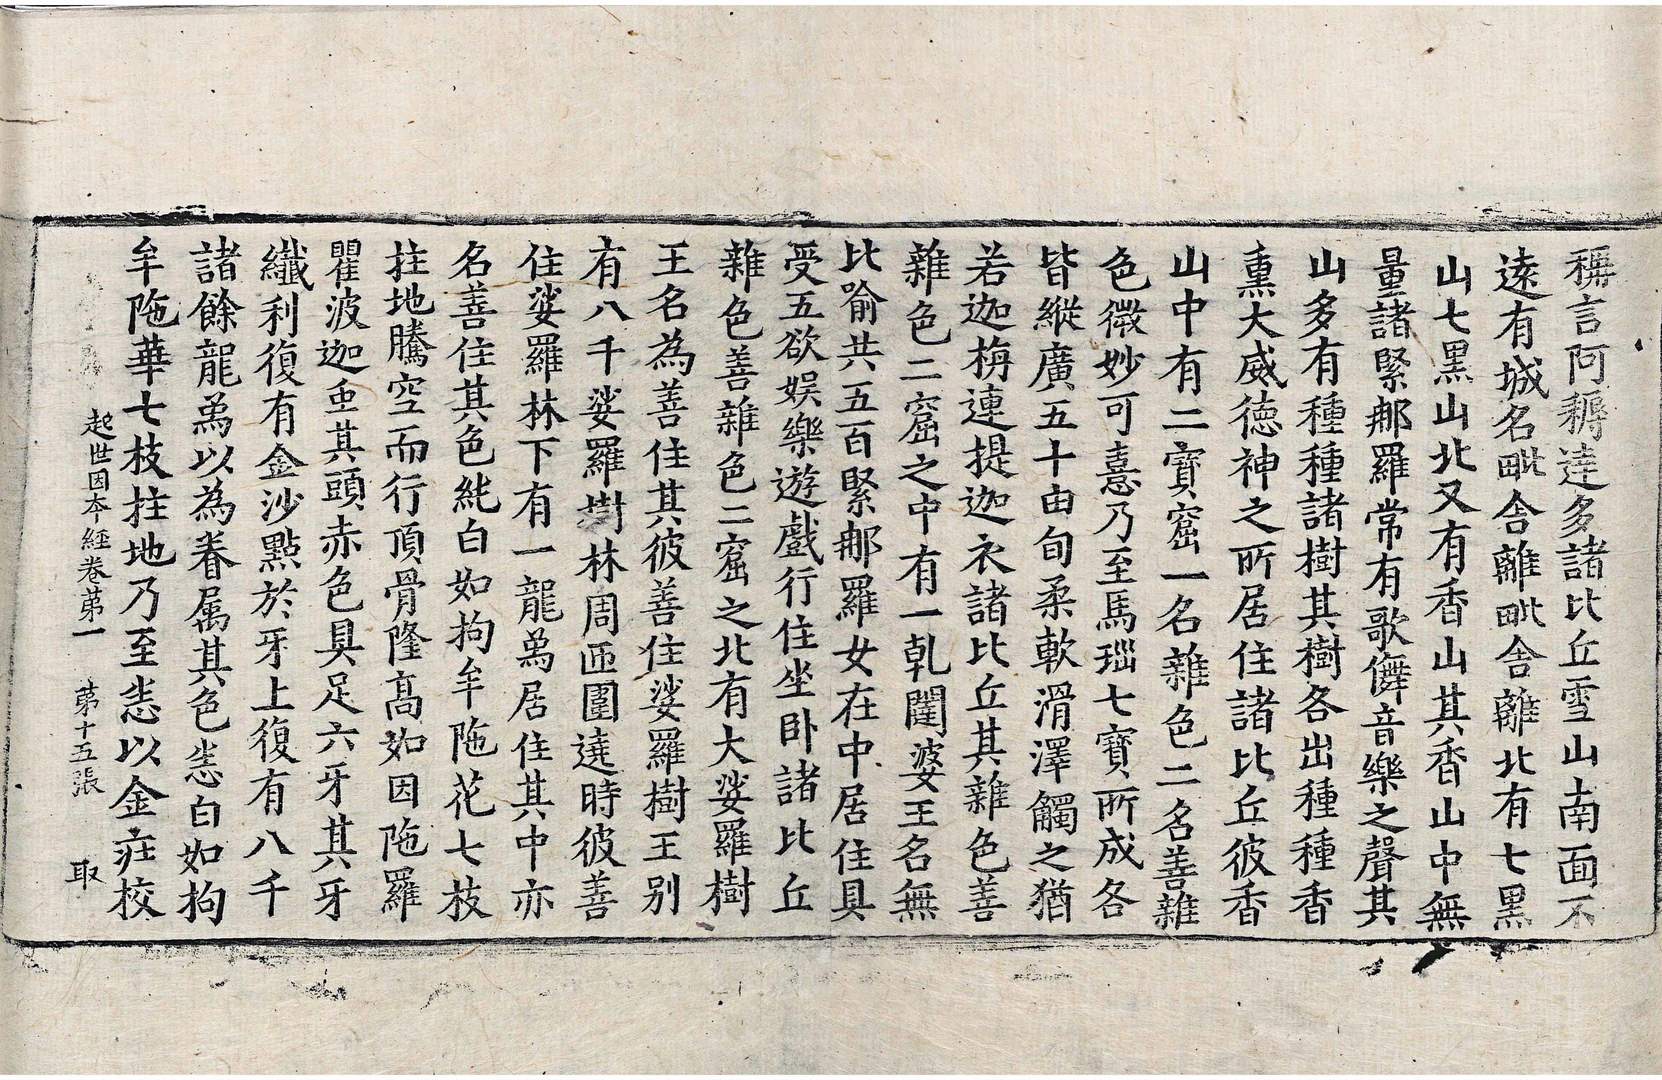 稱言阿耨達多諸比丘雪山南面不
遠有城名毗舍離毗舍離北有七黒
山七黒山北又有香山其香山中無
量諸緊那羅常有歌儛音樂之聲其
山多有種種諸樹其樹各出種種香
熏大威德神之所居住諸比丘彼香
山中有二寶窟一名雜色二名善雜
色微妙可憙乃至馬瑙七寶所成各
皆縱廣五十由旬柔軟滑澤觸之猶
若迦栴連提迦衣諸比丘其雜色善
雜色二窟之中有一乹闥婆王名無
比喻共五百緊那羅女在中居住具
受五欲娱樂遊戲行住坐卧諸比丘
雜色善雜色二窟之北有大娑羅樹
王名為善住其彼善住娑羅樹王别
有八千娑羅樹林周匝圍遶時彼善
住娑羅林下有一龍象居住其中亦
名善住其色純白如拘牟陁花七枝
拄地騰空而行頂骨隆髙如因陁羅
瞿波迦虫其頭赤色具足六牙其牙
纖利復有金沙點於牙上復有八千
諸餘龍象以為眷属其色恙白如拘
牟陁華七枝拄地乃至恙以金莊校
起世因本經卷苐一　苐十五張　取